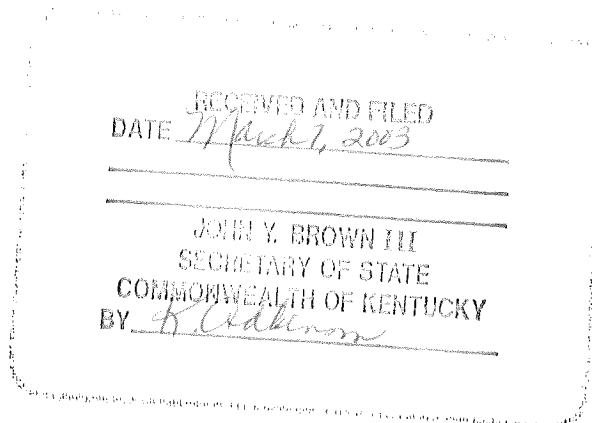 RECEIVED AND FILED
DATE March 7, 2003
JOHN Y. BROWN III
SECRETARY OF STATE
COMMONWEALTH OF KENTUCKY
BY K. Adkinson